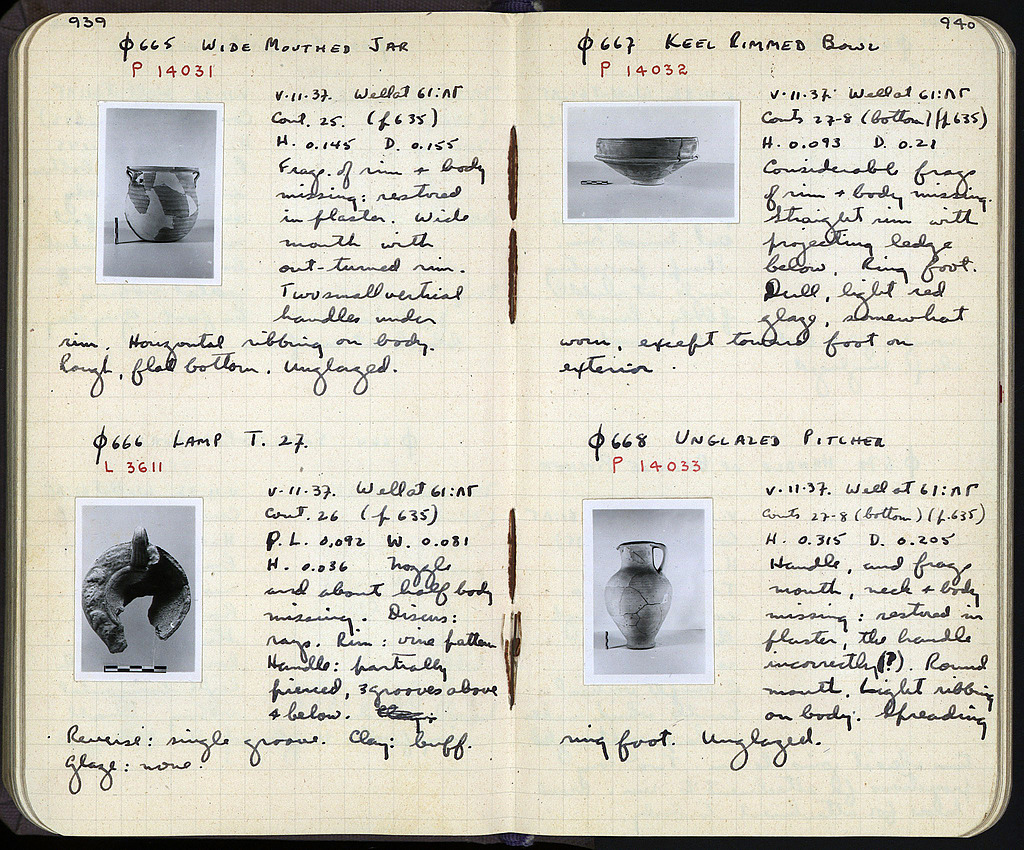 939
ϕ665 WIDE MOUTHED JAR
P 14031
V-11-37. Well at 61:ΛΓ
Cont. 25. (p 635)
H. 0.145 D. 0.155
Frags. of rim + body
missing: restored
in plaster. Wide
mouth with
out-turned rim.
Two small vertical
handles under
rim. Horizontal ribbing on body.
Rough, flat bottom. Unglazed.
ϕ666 LAMP T. 27.
L 3611
V-11-37. Well at 61:ΛΓ
Cont. 26 (p 635)
P. L. 0.092 W. 0.081
H. 0.036 Nozzle
and about half body
missing. Discus:
rays. Rim: vine pattern
Handle: partially
pierced, 3 grooves above
+ below.
Reverse: single groove. Clay: buff.
Glaze: none
940
ϕ667 KEEL RIMMED BOWL
P 14032
V-11-37. Well at 61:ΛΓ
Conts 27-8 (bottom) (p.635)
H. 0.093 D. 0.21
Considerable frags
of rim + body missing.
Straight rim with
projecting ledge
below. Ring foot.
Dull, light red
glaze, somewhat
worn, except toward foot on
exterior.
ϕ668 UNGLAZED PITCHER
P 14033
V-11-37. Well at 61:ΛΓ
Conts 27-8 (bottom) (p.635)
H. 0.315 D. 0.205
Handle, and frags
mouth, neck + body
missing: restored in
plaster, the handle
incorrectly(?). Round
mouth. Light ribbing
on body. Spreading
ring foot. Unglazed.